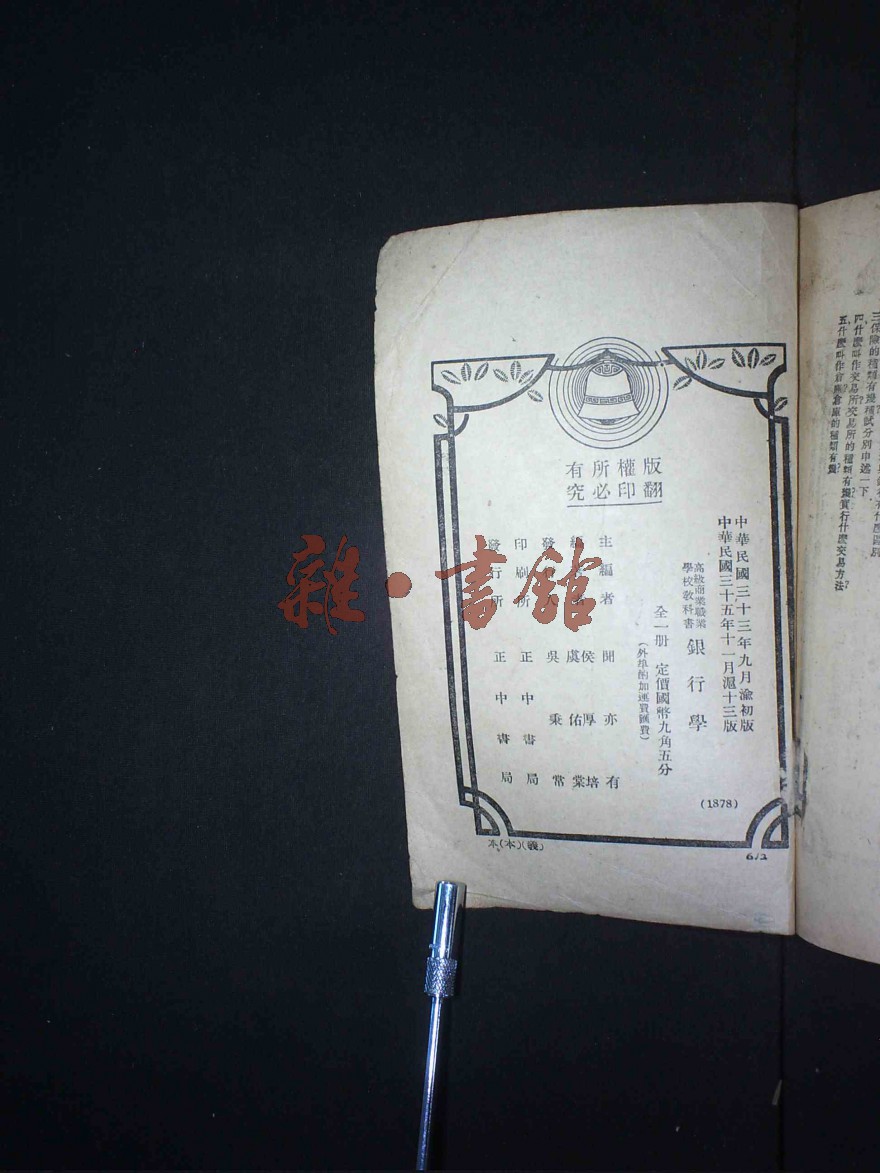 版權所有
翻印必究
中華民國三十三年九月渝初版
中華民國三十五年十一月滬十三版
高級商業職業
學校教科書
銀行學
全一册 定價國幣九角五分
(外埠酌加運費匯費)
主編者 聞亦有
侯厚培
虞佑棠
發 人 吳秉常
印刷所 正中書局
發行所 正中書局
(1878)
本(本)(巍)
6/2
四、什麽叫作交易所?交易所的種類有幾?實行什麽交易方法?
五、什麽叫作倉庫?倉庫的種類有幾?
雜·書館